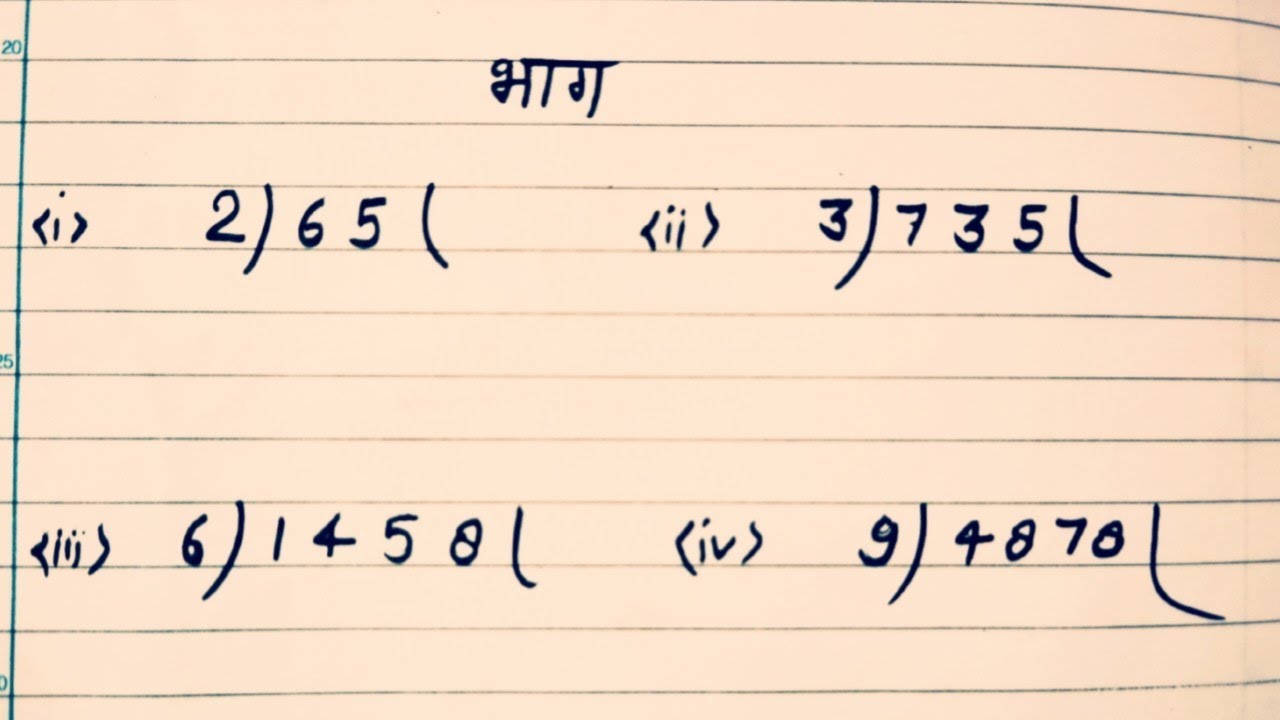 20
भाग
<i> 2)65( <ii> 3)735(
25
<iii> 6)1458( <iv> 9)4878(
0